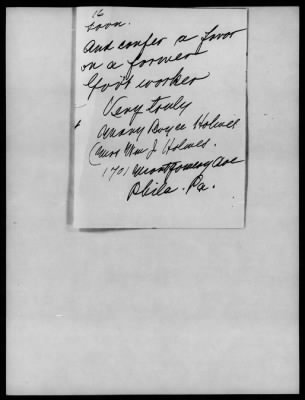 16
soon.
and confer a favor
on a former
Gov't worker
Very truly
Annny Boyce Holmes
(Mrs Wm J Holmes.
1701 Montgomery Ave
Phila. Pa.